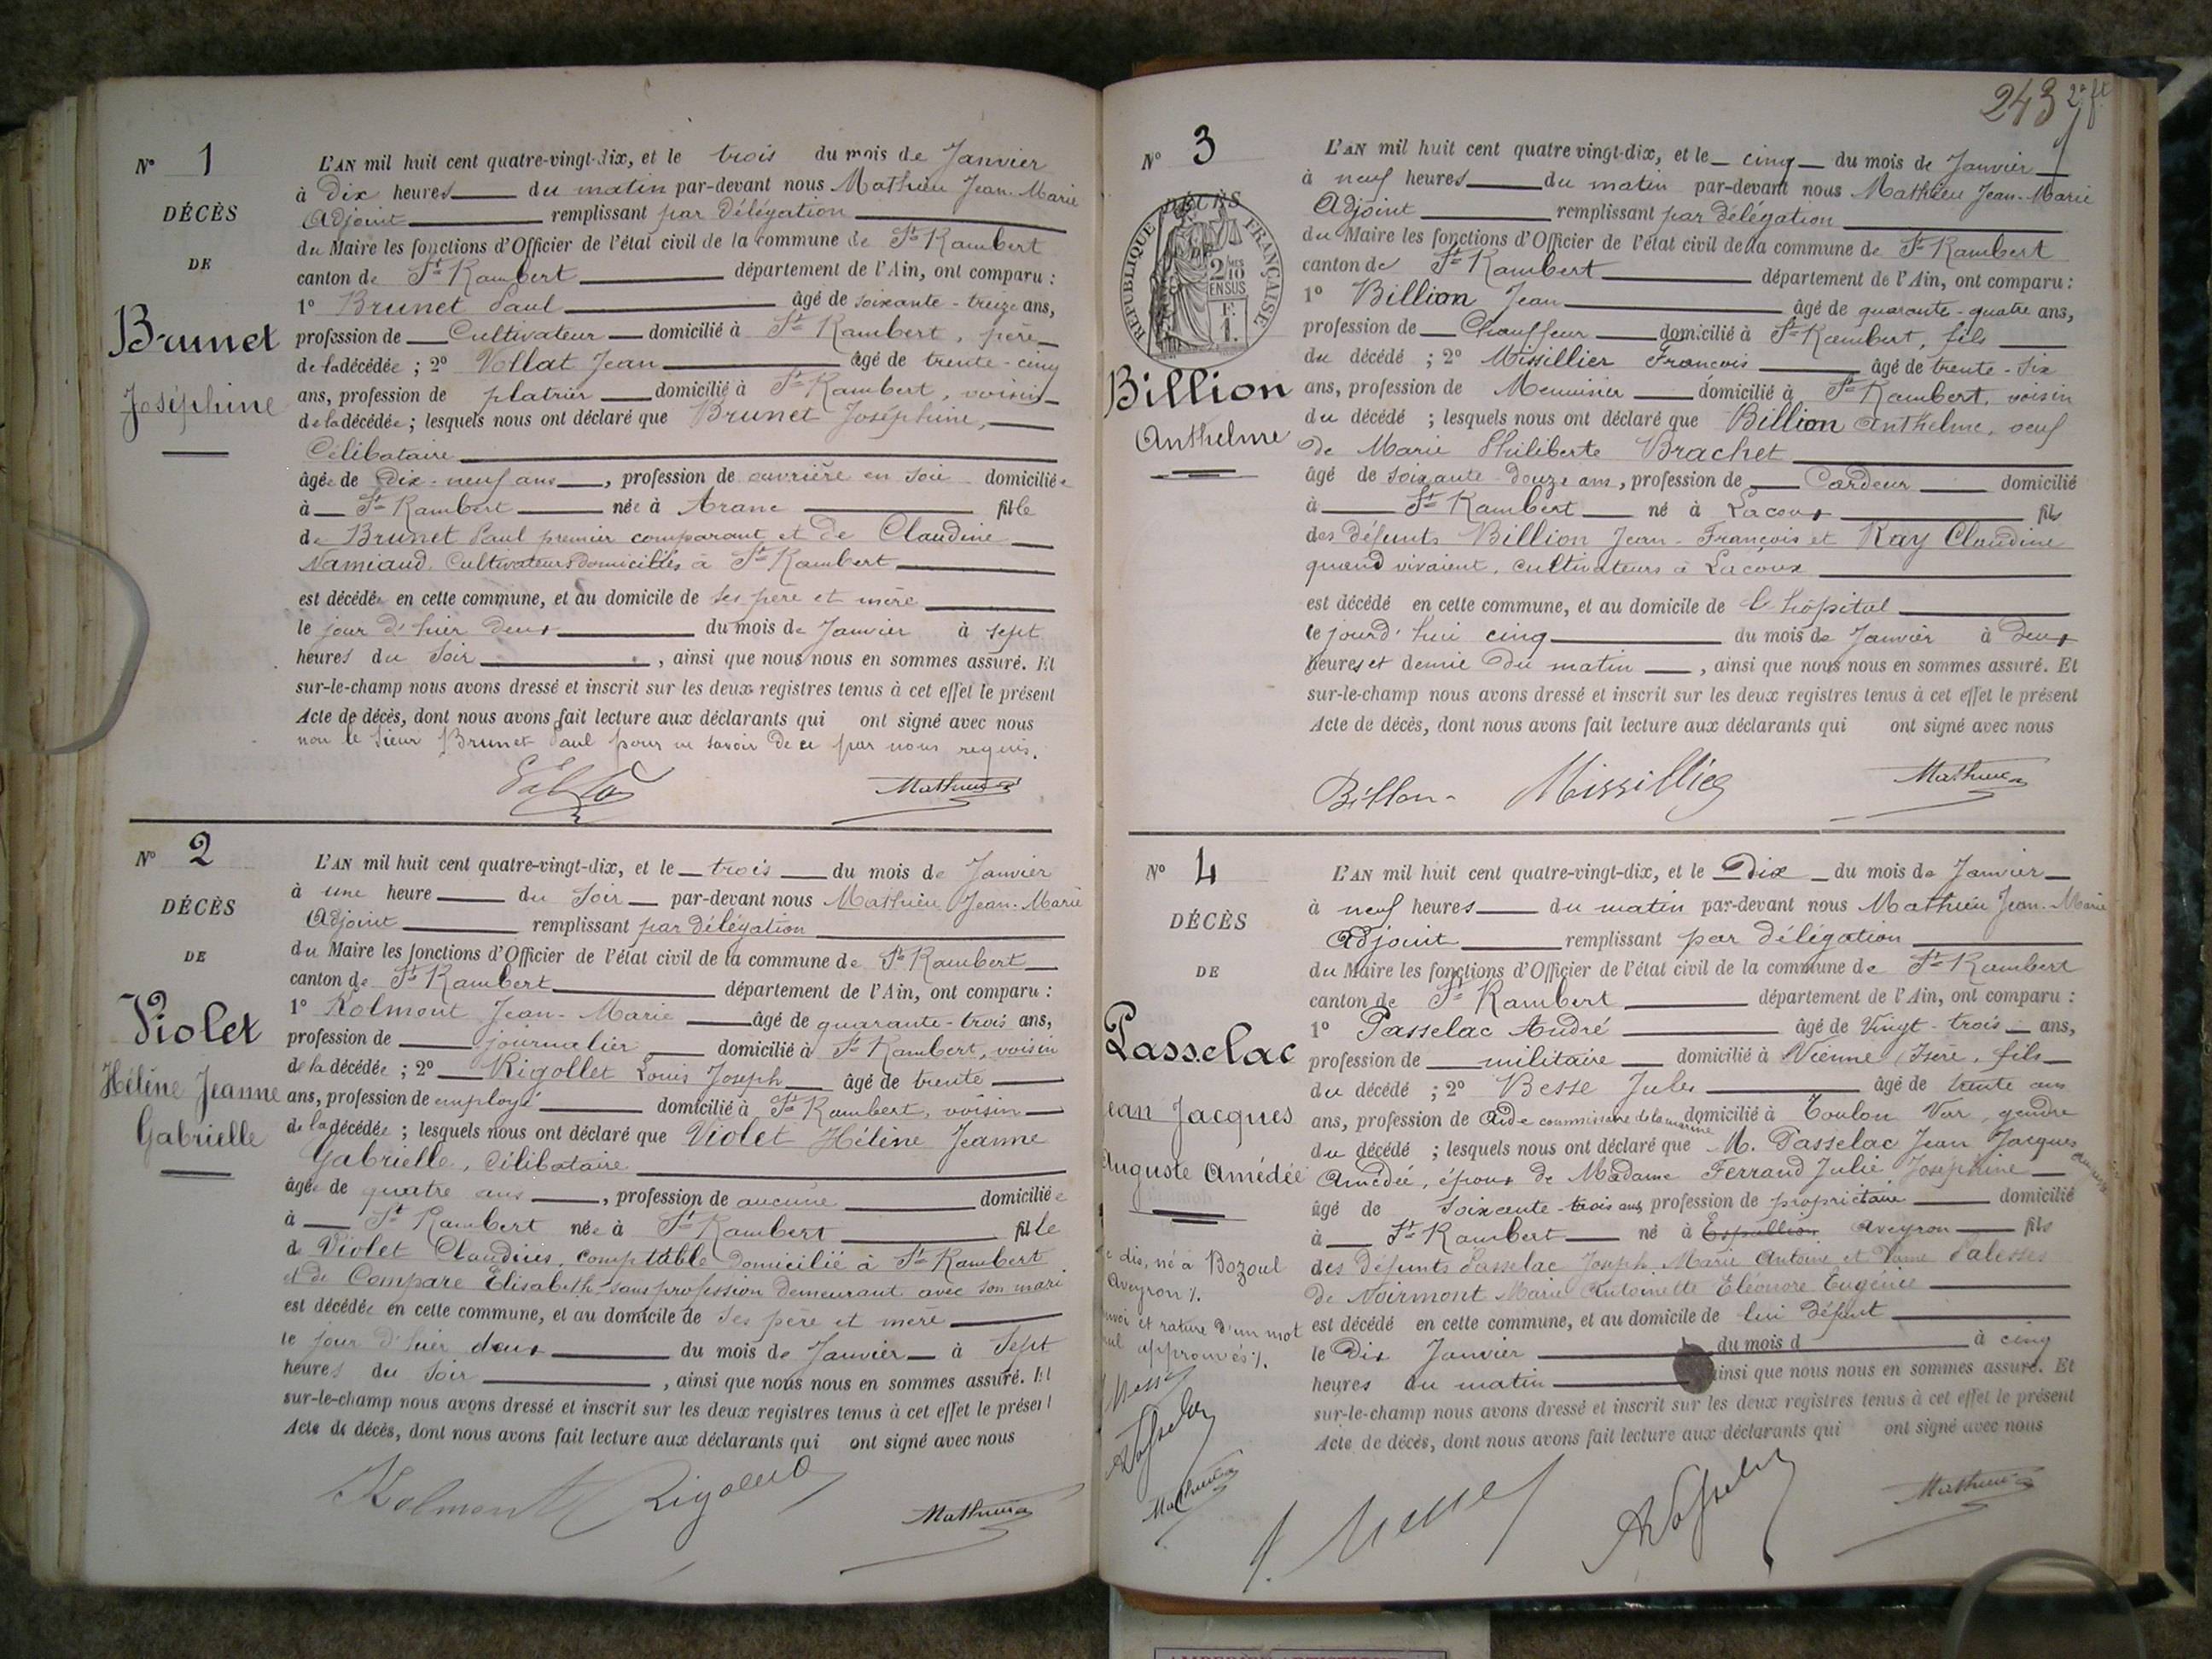 N° 1
DÉCÈS
DE
Brunet
Joséphine
L'AN mil huit cent quatre-vingt-dix, et le trois du mois de Janvier
à Dix heures du matin par-devant nous Mathieu Jean-Marie
Adjoint remplissant par délégation
du Maire les fonctions d'Officier de l'état civil de la commune de St Rambert
canton de St Rambert département de l'Ain, ont comparu :
1° Brunet Paul âgé de soixante-treize ans,
profession de Cultivateur domicilié à St Rambert, père
de la décédée ; 2° Vollat Jean âgé de trente-cinq
ans, profession de platrier domicilié à St Rambert, voisin
de la décédée ; lesquels nous ont déclaré que Brunet Joséphine,
Célibataire
âgée de Dix-neuf ans, profession de ouvrière en soie domiciliée
à St Rambert née à Aranc fille
de Brunet Paul premier comparant et de Claudine
Namiaud Cultivateurs domiciliés à St Rambert
est décédée en cette commune, et au domicile de ses père et mère
le jour d'hier deux du mois de Janvier à sept
heures du soir, ainsi que nous nous en sommes assuré. Et
sur-le-champ nous avons dressé et inscrit sur les deux registres tenus à cet effet le présent
Acte de décès, dont nous avons fait lecture aux déclarants qui ont signé avec nous
non le sieur Brunet Paul pour ne savoir de ce par nous requis.
Mathieu
N° 2
DÉCÈS
DE
Violet
Hélène Jeanne
Gabrielle
L'AN mil huit cent quatre-vingt-dix, et le trois du mois de Janvier
à une heure du soir par-devant nous Mathieu Jean-Marie
Adjoint remplissant par délégation
du Maire les fonctions d'Officier de l'état civil de la commune de St Rambert
canton de St Rambert département de l'Ain, ont comparu :
1° Kolmont Jean-Marie âgé de quarante-trois ans,
profession de journalier domicilié à St Rambert, voisin
de la décédée ; 2° Rigollet Louis Joseph âgé de trente
ans, profession de employé domicilié à St Rambert, voisin
de la décédée ; lesquels nous ont déclaré que Violet Hélène Jeanne
Gabrielle, célibataire
âgée de quatre ans, profession de aucune domiciliée
à St Rambert née à St Rambert fille
de Violet Claudius, comptable domicilié à St Rambert
et de Compare Elisabeth sans profession demeurant avec son mari
est décédée en cette commune, et au domicile de ses père et mère
le jour d'hier deux du mois de Janvier à sept
heures du soir, ainsi que nous nous en sommes assuré. Et
sur-le-champ nous avons dressé et inscrit sur les deux registres tenus à cet effet le présent
Acte de décès, dont nous avons fait lecture aux déclarants qui ont signé avec nous
Kolmont Rigollet
Mathieu
243 2e ft
N° 3
DÉCÈS
RÉPUBLIQUE FRANÇAISE
2/10 EN SUS
F. 1.
Billion
Anthelme
L'AN mil huit cent quatre vingt-dix, et le cinq du mois de Janvier
à neuf heures du matin par-devant nous Mathieu Jean-Marie
Adjoint remplissant par délégation
du Maire les fonctions d'Officier de l'état civil de la commune de St Rambert
canton de St Rambert département de l'Ain, ont comparu :
1° Billion Jean âgé de quarante-quatre ans,
profession de Chauffeur domicilié à St Rambert, fils
du décédé ; 2° Missillier François âgé de trente-six
ans, profession de Menuisier domicilié à St Rambert, voisin
du décédé ; lesquels nous ont déclaré que Billion Anthelme, veuf
de Marie Philiberte Brachet
âgé de soixante-douze ans, profession de Cardeur domicilié
à St Rambert né à Lacoux fils
des défunts Billion Jean-François et Ray Claudine
quand vivaient, cultivateurs à Lacoux
est décédé en cette commune, et au domicile de l'hôpital
le jourd'hui cinq du mois de Janvier à deux
heures et demie du matin, ainsi que nous nous en sommes assuré. Et
sur-le-champ nous avons dressé et inscrit sur les deux registres tenus à cet effet le présent
Acte de décès, dont nous avons fait lecture aux déclarants qui ont signé avec nous
Billon Missillier Mathieu
N° 4
DÉCÈS
DE
Passelac
Jean Jacques
Auguste Amédée
dis, né à Bozoul
Aveyron %.
Renvoi et rature d'un mot
nul approuvés %.
L'AN mil huit cent quatre-vingt-dix, et le Dix du mois de Janvier
à neuf heures du matin par-devant nous Mathieu Jean-Marie
Adjoint remplissant par délégation
du Maire les fonctions d'Officier de l'état civil de la commune de St Rambert
canton de St Rambert département de l'Ain, ont comparu :
1° Passelac André âgé de Vingt-trois ans,
profession de militaire domicilié à Vienne, Isère, fils
du décédé ; 2° Besse Jules âgé de trente ans
ans, profession de Aide commissaire de la marine domicilié à Toulon Var, gendre
du décédé ; lesquels nous ont déclaré que M. Passelac Jean Jacques Auguste
Amédée, époux de Madame Ferrand Julie Joséphine
âgé de soixante-trois ans profession de propriétaire domicilié
à St Rambert né à Espallion Aveyron fils
des défunts Passelac Joseph Marie Antoine et Dame Palesses
de Noirmont Marie Antoinette Eléonore Eugénie
est décédé en cette commune, et au domicile de lui défunt
le Dix Janvier du mois d à cinq
heures du matin ainsi que nous nous en sommes assuré. Et
sur-le-champ nous avons dressé et inscrit sur les deux registres tenus à cet effet le présent
Acte de décès, dont nous avons fait lecture aux déclarants qui ont signé avec nous
J. Besse A Passelac Mathieu